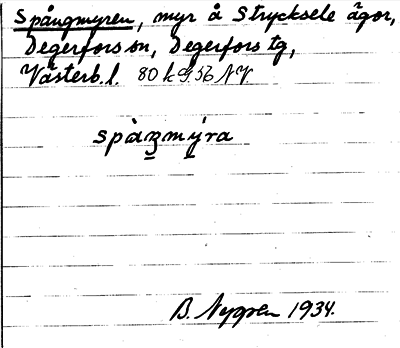 Spångmyren, myr å Strycksele ägor,
Degerfors sn, Degerfors tg,
Västerb. l. 80 k 9 56 NV.
spàʒmýra
B. Nygren 1934.